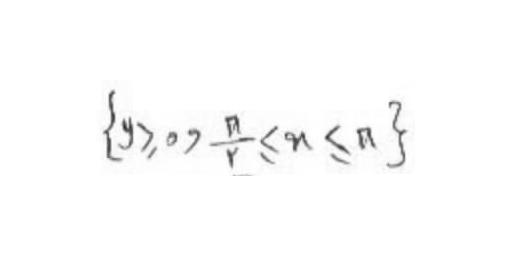 {y ≥ 0 , π/۲ ≤ x ≤ π}